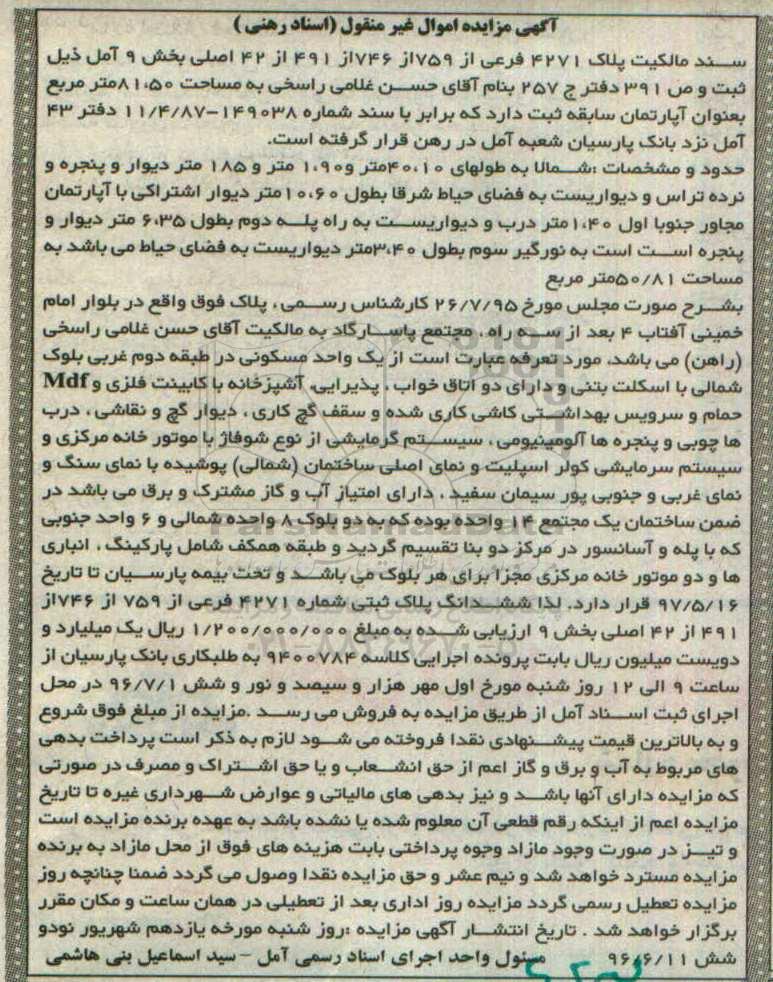 آگهی مزایده اموال غیر منقول (اسناد رهنی)
سند مالکیت پلاک ۴۲۷۱ فرعی از ۷۵۹از ۷۴۶از ۴۹۱ از ۴۲ اصلی بخش ۹ آمل ذیل
ثبت و ص ۳۹۱ دفتر ج ۲۵۷ بنام آقای حسن غلامی راسخی به مساحت ۸۱،۵۰متر مربع
بعنوان آپارتمان سابقه ثبت دارد که برابر با سند شماره ۱۴۹۰۳۸-۱۱/۴/۸۷ دفتر ۴۳
آمل نزد بانک پارسیان شعبه آمل در رهن قرار گرفته است.
حدود و مشخصات :شمالا به طولهای ۴۰،۱۰متر و۱،۹۰ متر و ۱۸۵ متر دیوار و پنجره و
نرده تراس و دیواریست به فضای حیاط شرقا بطول ۱۰،۶۰متر دیوار اشتراکی با آپارتمان
مجاور جنوبا اول ۱،۴۰متر درب و دیواریست به راه پله دوم بطول ۶،۳۵ متر دیوار و
پنجره است است به نورگیر سوم بطول ۳،۴۰متر دیواریست به فضای حیاط می باشد به
مساحت ۵۰/۸۱متر مربع
بشرح صورت مجلس مورخ ۲۶/۷/۹۵ کارشناس رسمی، پلاک فوق واقع در بلوار امام
خمینی آفتاب ۴ بعد از سه راه ، مجتمع پاسارگاد به مالکیت آقای حسن غلامی راسخی
(راهن) می باشد. مورد تعرفه عبارت است از یک واحد مسکونی در طبقه دوم غربی بلوک
شمالی با اسکلت بتنی و دارای دو اتاق خواب ، پذیرایی، آشپزخانه با کابینت فلزی و Mdf
حمام و سرویس بهداشتی کاشی کاری شده و سقف گچ کاری ، دیوار گچ و نقاشی ، درب
ها چوبی و پنجره ها آلومینیومی ، سیستم گرمایشی از نوع شوفاژ با موتور خانه مرکزی و
سیستم سرمایشی کولر اسپلیت و نمای اصلی ساختمان (شمالی) پوشیده با نمای سنگ و
نمای غربی و جنوبی پور سیمان سفید ، دارای امتیاز آب و گاز مشترک و برق می باشد در
ضمن ساختمان یک مجتمع ۱۴ واحده بوده که به دو بلوک ۸ واحده شمالی و ۶ واحد جنوبی
که با پله و آسانسور در مرکز دو بنا تقسیم گردید و طبقه همکف شامل پارکینگ ، انباری
ها و دو موتور خانه مرکزی مجزا برای هر بلوک می باشد و تحت بیمه پارسیان تا تاریخ
۹۷/۵/۱۶ قرار دارد. لذا ششدانگ پلاک ثبتی شماره ۴۲۷۱ فرعی از ۷۵۹ از ۷۴۶از
۴۹۱ از ۴۲ اصلی بخش ۹ ارزیابی شده به مبلغ ۱/۲۰۰/۰۰۰/۰۰۰ ریال یک میلیارد و
دویست میلیون ریال بابت پرونده اجرایی کلاسه ۹۴۰۰۷۸۴ به طلبکاری بانک پارسیان از
ساعت ۹ الی ۱۲ روز شنبه مورخ اول مهر هزار و سیصد و نور و شش ۹۶/۷/۱ در محل
اجرای ثبت اسناد آمل از طریق مزایده به فروش می رسد .مزایده از مبلغ فوق شروع
و به بالاترین قیمت پیشنهادی نقدا فروخته می شود لازم به ذکر است پرداخت بدهی
های مربوط به آب و برق و گاز اعم از حق انشعاب و یا حق اشتراک و مصرف در صورتی
که مزایده دارای آنها باشد و نیز بدهی های مالیاتی و عوارض شهرداری غیره تا تاریخ
مزایده اعم از اینکه رقم قطعی آن معلوم شده یا نشده باشد به عهده برنده مزایده است
و تیز در صورت وجود مازاد وجوه پرداختی بابت هزینه های فوق از محل مازاد به برنده
مزایده مسترد خواهد شد و نیم عشر و حق مزایده نقدا وصول می گردد ضمنا چنانچه روز
مزایده تعطیل رسمی گردد مزایده روز اداری بعد از تعطیلی در همان ساعت و مکان مقرر
برگزار خواهد شد . تاریخ انتشار آگهی مزایده :روز شنبه مورخه یازدهم شهریور نودو
شش ۹۶/۶/۱۱ مسئول واحد اجرای اسناد رسمی آمل - سید اسماعیل بنی هاشمی